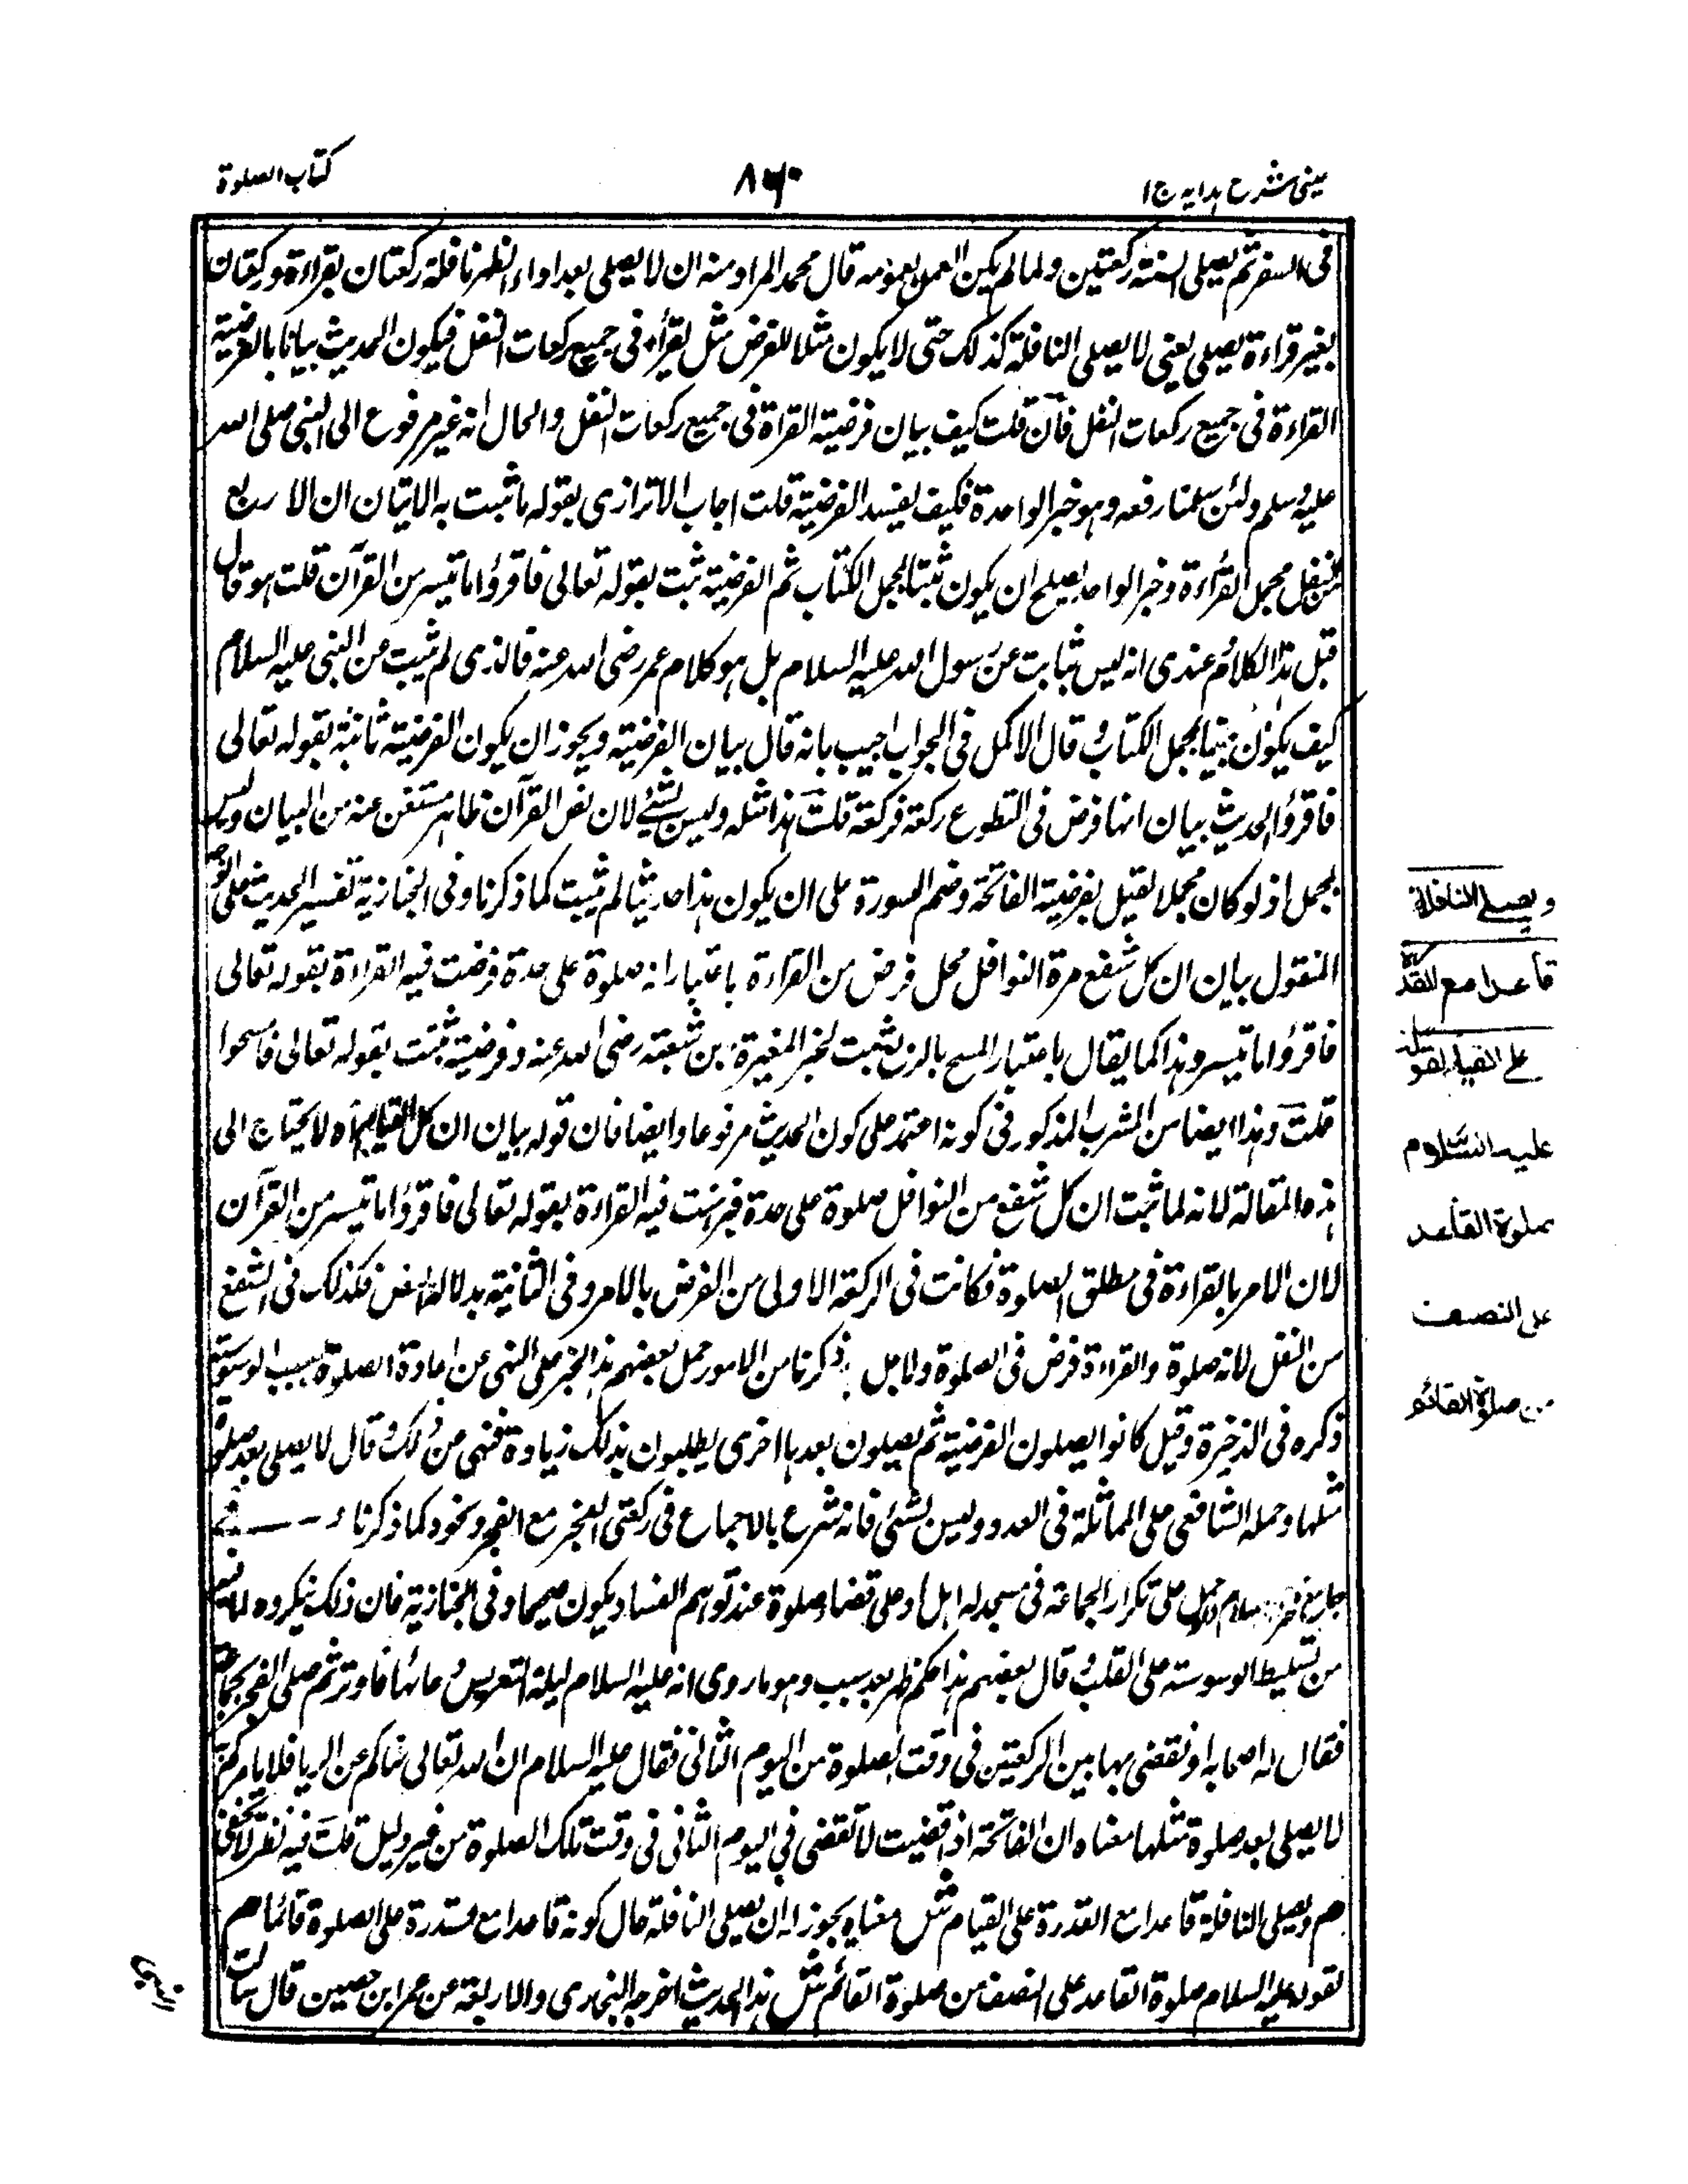 عینی شرح ہدایہ ج ا
۸۶۰
کتاب الصلوة
فى السفر ثم يصلى السنة ركعتين ولما لم يكن العمل بعمومه قال محمد المراد منه ان لا يصلى بعد اداء الظهر نافلة ركعتان بقراءة وركعتان
بغير قراءة يصلى يعنى لا يصلى النافلة كذلك حتى لا يكون مثلا للفرض مثل يقرأ فى جميع ركعات النفل فيكون الحديث بيانا بالفرضية
القراءة فى جميع ركعات النفل فان قلت كيف بيان فرضية القراة فى جميع ركعات النفل والحال انه غير مرفوع الى النبى صلى الله
عليه وسلم ولئن سلمنا رفعه وهو خبر الواحدة فكيف يفيد الفرضية قلت اجاب الاترازى بقوله ما ثبت به الاتيان ان الا ربع
من النفل مجمل القراءة وخبر الواحد يصلح ان يكون مثبتا لمجمل الكتاب ثم الفرضية ثبت بقوله تعالى فاقرؤا ما تيسر من القرآن قلت هو قال
قبل هذا الكلام عندى انه ليس بثابت عن رسول الله عليه السلام بل هو كلام عمر رضى الله عنه فالذى لم يثبت عن النبى عليه السلام
كيف يكون مبينا لمجمل الكتاب وقال الاكمل فى الجواب اجيب بانه قال بيان الفرضية ويجوز ان يكون الفرضية ثانية بقوله تعالى
فاقرؤا الحديث بيان انها فرض فى التطوع ركعة فركعة قلت هذا مثله وليس بشئ لان نص القرآن ظاهر مستغن عنه من البيان وليس
بمجمل اذ لو كان مجملا لقيل بفرضية الفاتحة وضم السورة على ان يكون هذا حديثا لم يثبت كما ذكرنا وفى الخبازية تفسير الحديث على الوجه
المنقول بيان ان كل شفع مرة النوافل محل فرض من القراءة باعتبار انه صلوة على حدة فرضت فيه القراءة بقوله تعالى
فاقرؤا ما تيسر وهذا كما يقال باعتبار المسح بالربع يثبت لخبر المغيرة بن شعبة رضى الله عنه وفرضية ثبتت بقوله تعالى فامسحوا
قلت وهذا ايضا من المشرب المذكور فى كونه اعتمد على كون الحديث مرفوعا وايضا فان قوله بيان ان كل لا يحتاج الى
هذه المقالة لانه لما ثبت ان كل شفع من النوافل صلوة على حدة فرضت فيه القراءة بقوله تعالى فاقرؤا ما تيسر من القرآن
لان الامر بالقراءة فى مطلق الصلوة فكانت فى الركعة الاولى من الفرض بالامر وفى الثانية بدلالة النص فكذلك فى الشفع
من النفل لانه صلوة والقراءة فرض فى الصلوة ولاجل ذكرنا من الامور حمل بعضهم هذا الخبر على النهى عن اعادة الصلوة بسبب الوسوسة
ذكره فى الذخيرة وقيل كانوا يصلون الفرضية ثم يصلون بعدها اخرى يطلبون بذلك زيادة فنهى من ذلك وقال لا يصلى بعد صلوة
مثلها وحمله الشافعى على المماثلة فى العدد وليس بشئ فانه شرع بالاجماع فى ركعتى الفجر مع الفجر ونحوه كما ذكرناه فى
جامع على تكرار الجماعة فى مسجد له اهل او على قضاء صلوة عند توهم الفساد يكون صحيحا وفى الخبازية فان ذلك مكروه لما فيه
من تسليط الوسوسة على القلب وقال بعضهم هذا حكم ظهر بعد سبب وهو ما روى انه عليه السلام ليلة التعريس فاوتر ثم صلى الفجر بجماعة
فقال له اصحابه او نقضى بها بين الركعتين فى وقت الصلوة من اليوم الثانى فقال عليه السلام ان الله تعالى نهاكم عن الربا فلا يامركم
لا يصلى بعد صلوة مثلها معناه ان الفائتة اذا قضيت لا تقضى فى اليوم الثانى فى وقت تلك الصلوة من غير دليل قلت فيه نظر لا يخفى
هم ويصلى النافلة قاعدا مع القدرة على القيام ش معناه يجوز له ان يصلى النافلة حال كونه قاعدا مع قدرة على الصلوة قائما م
لقوله عليه السلام صلوة القاعد على النصف من صلوة القائم ش هذا الحديث اخرجه البخارى والاربعة عن عمر ابن حصين قال سالت
ويصلى النافلة
قاعدا مع القدرة
على القيام لقوله
عليه السلام
صلوة القاعد
على النصف
من صلوة القائم
النبى